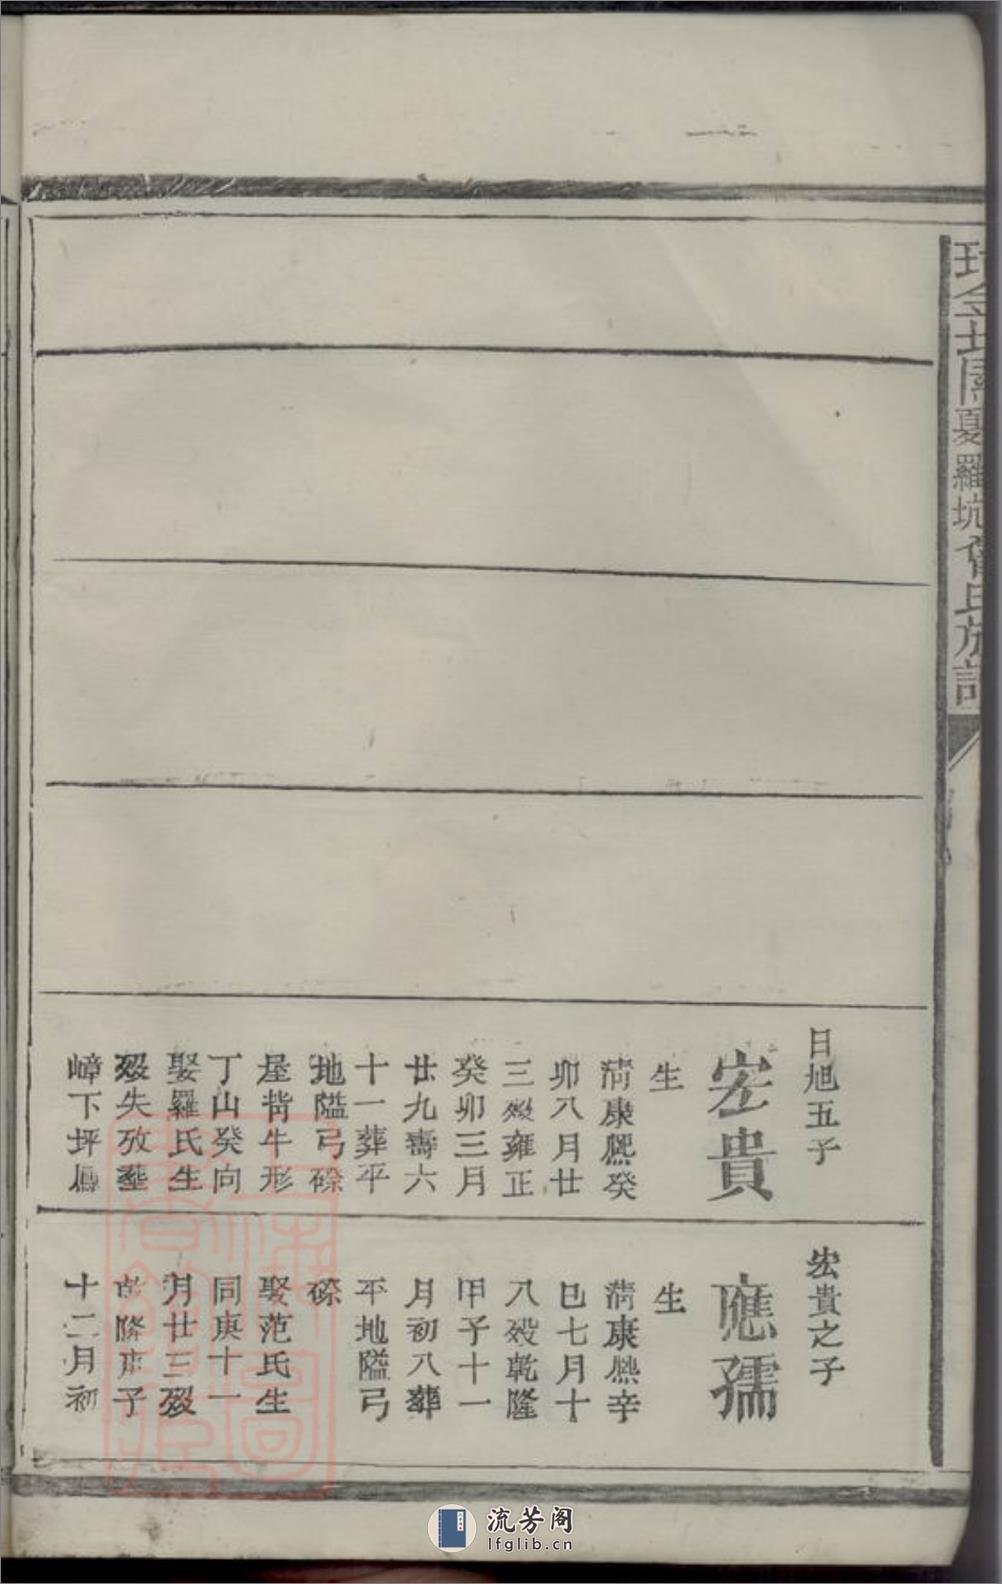 日旭五子
宏貴
生
清康熙癸
卯八月廿
三歿雍正
癸卯三月
廿九壽六
十一葬平
地隘弓磜
屋背牛形
丁山癸向
娶羅氏生
歿失攷塟
嶂下坪鳳
宏貴之子
應孺
生
清康熙辛
巳七月十
八歿乾隆
甲子十一
月初八葬
平地隘弓
磜
娶范氏生
同庚十一
月廿三歿
乾隆庚子
十二月初
夏羅坑曾氏族譜
流芳阁
lfglib.cn